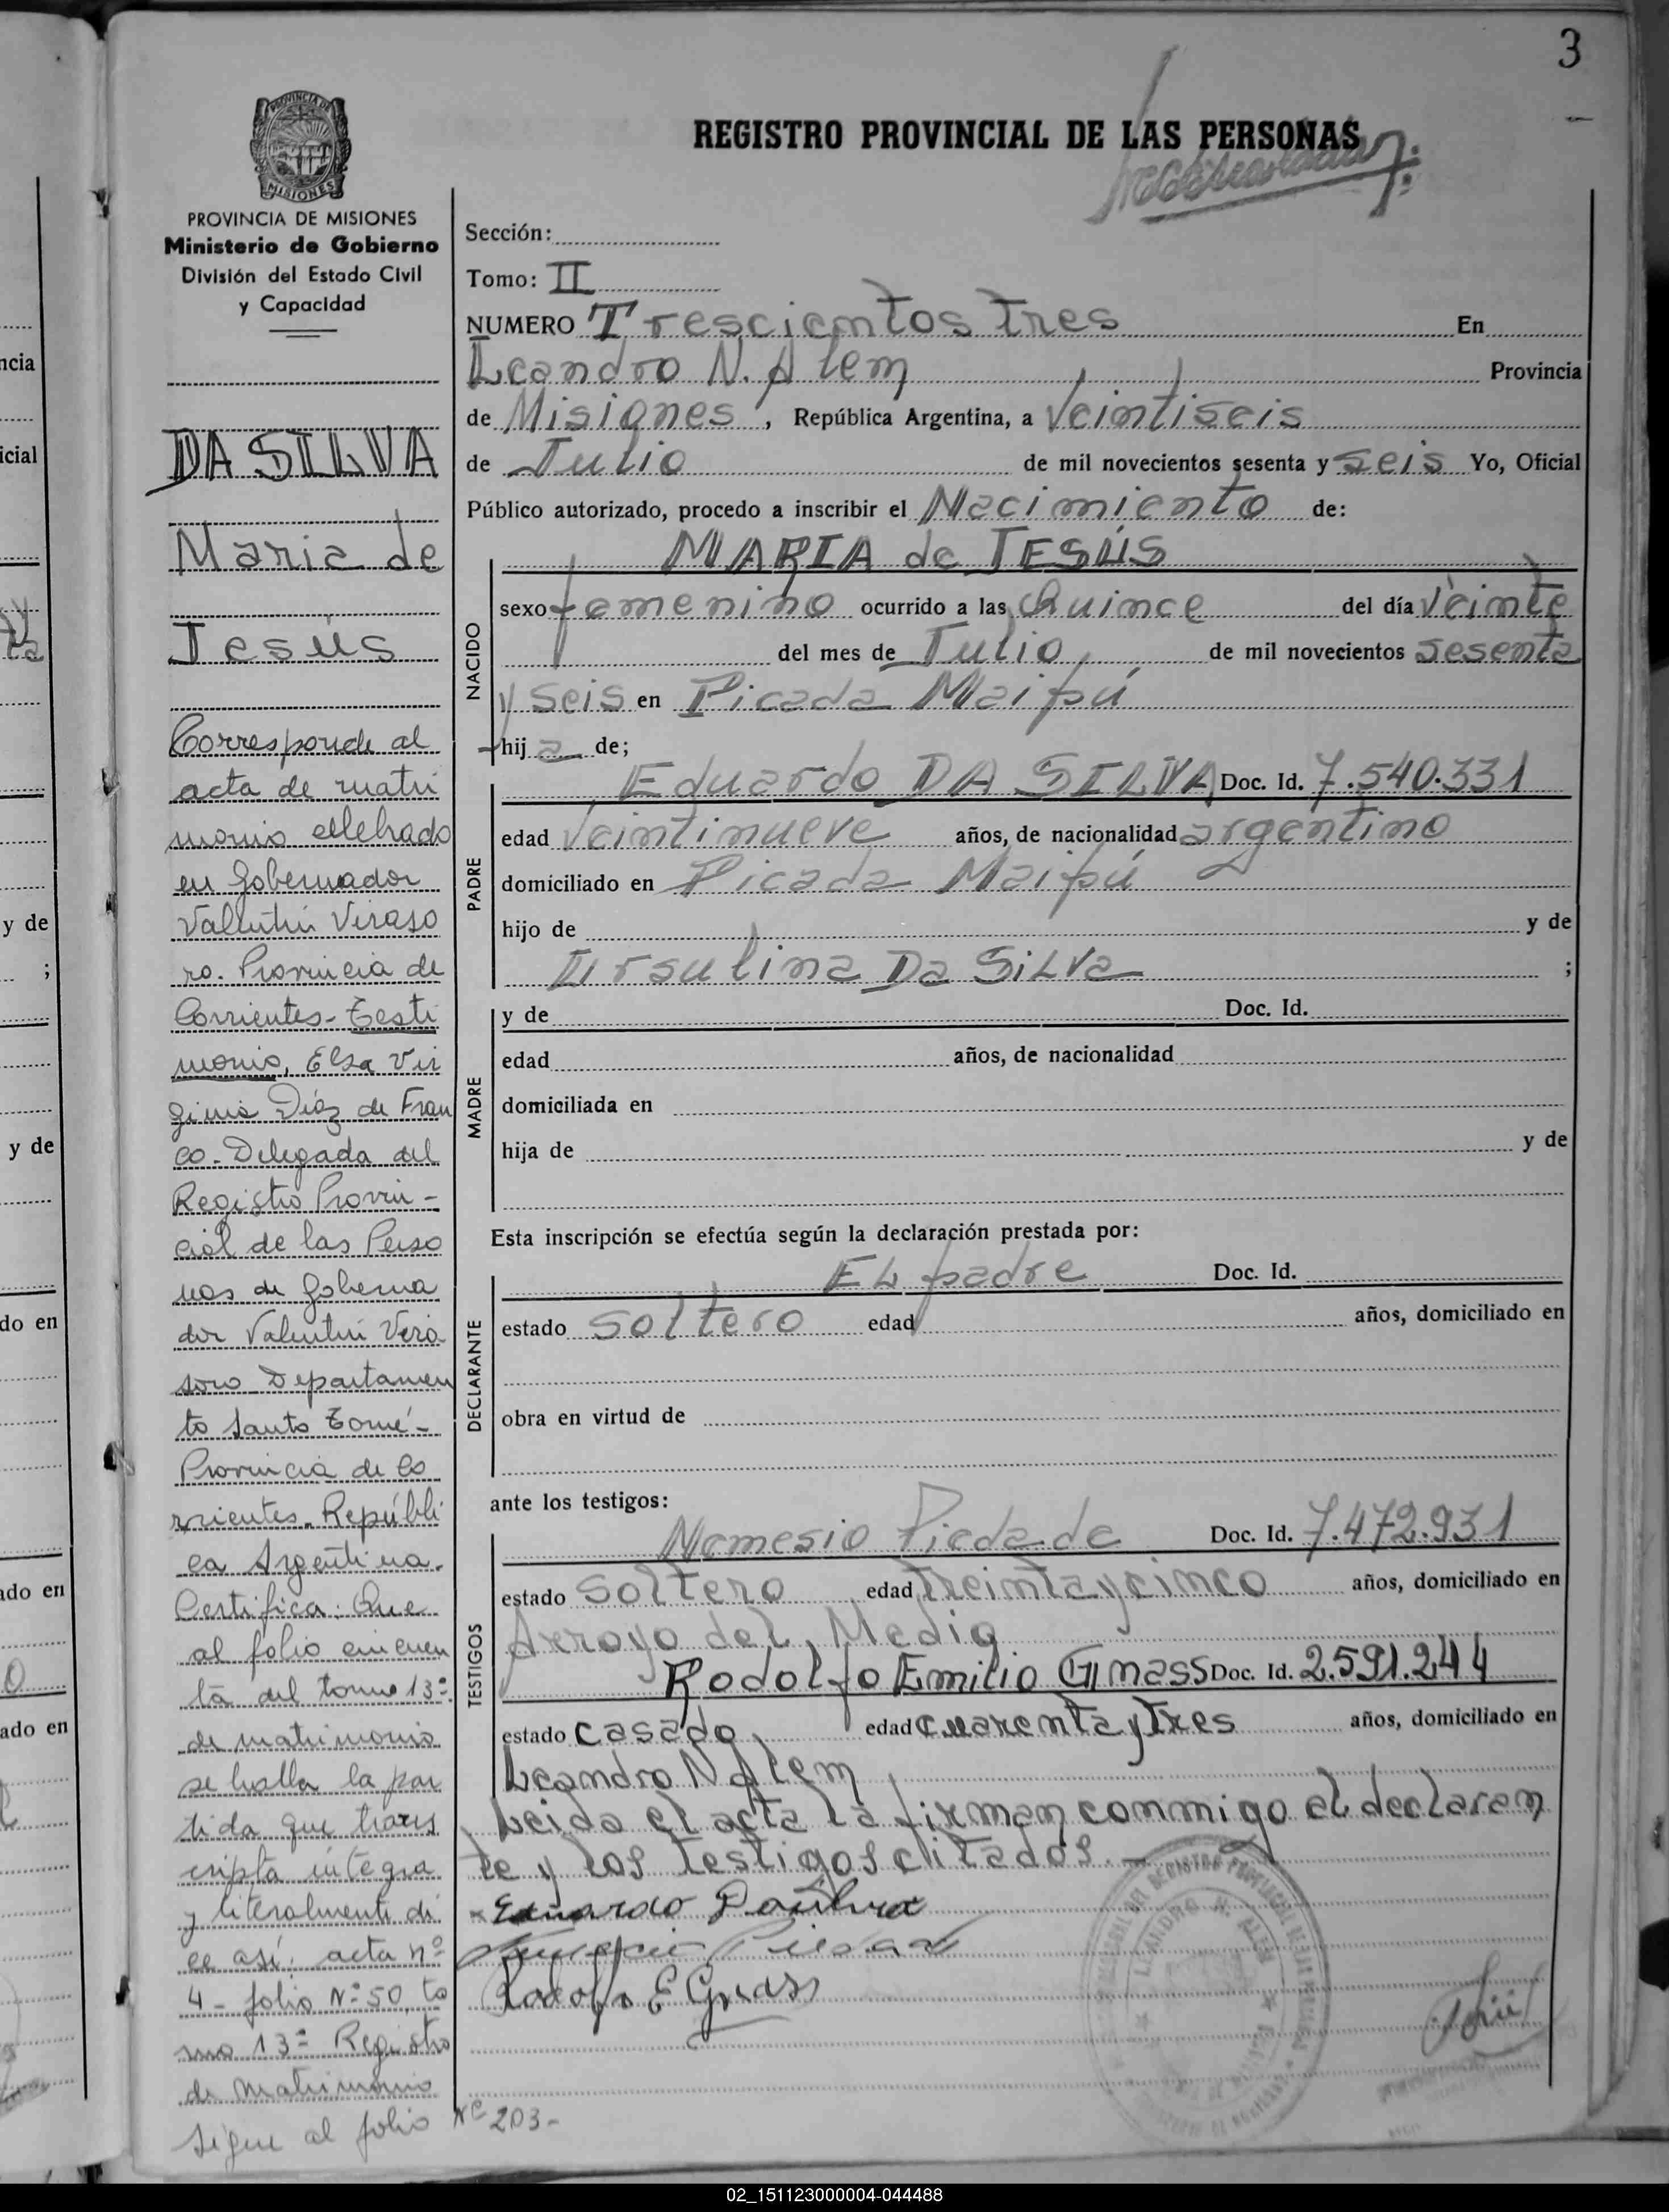 3
PROVINCIA DE
MISIONES
PROVINCIA DE MISIONES
Ministerio de Gobierno
División del Estado Civil
y Capacidad
DA SILVA
Maria de
Jesús
Corresponde al
acta de matri
monio celebrado
en Gobernador
Valentín Viraso
ro. Provincia de
Corrientes - Testi
monio, Elsa Vir
ginia Díaz de Fran
co - Delegada del
Registro Provin -
cial de las Perso
nas de Goberna
dor Valentín Vira
soro Departamen
to Santo Tomé -
Provincia de Co
rrientes. Repúbli
ca Argentina.
Certifica: Que
al folio cincuen
ta del tomo 13º
de matrimonio
se halla la par
tida que trans
cripta íntegra
y literalmente di
ce así: acta nº
4 - folio Nº 50, to
mo 13º Registro
de Matrimonio
Sigue al folio Nº 203 -
REGISTRO PROVINCIAL DE LAS PERSONAS
Sección:
Tomo: II
NUMERO Trescientos tres En
Leandro N. Alem Provincia
de Misiones, República Argentina, a Veintiseis
de Julio de mil novecientos sesenta y seis Yo, Oficial
Público autorizado, procedo a inscribir el Nacimiento de:
MARIA de JESÚS
NACIDO
sexo femenino ocurrido a las Quince del día Veinte
del mes de Julio, de mil novecientos sesenta
y seis en Picada Maipú
hija de;
PADRE
Eduardo DA SILVA Doc. Id. 7.540.331
edad Veintinueve años, de nacionalidad argentino
domiciliado en Picada Maipú
hijo de y de
Ursulina Da SiLVa ;
MADRE
y de Doc. Id.
edad años, de nacionalidad
domiciliada en
hija de y de
Esta inscripción se efectúa según la declaración prestada por:
DECLARANTE
EL padre Doc. Id.
estado soltero edad años, domiciliado en
obra en virtud de
ante los testigos:
TESTIGOS
Nemesio Piedade Doc. Id. 7.472.931
estado soltero edad treintaycinco años, domiciliado en
Arroyo del Medio
Rodolfo Emilio Ginass Doc. Id. 2.591.244
estado casado edad cuarenta y tres años, domiciliado en
Leandro N Alem
Leida el acta la firman conmmigo el declaran
te y los testigos citados. -
Eduardo Dasilva
Rodolfo E Ginass
LEANDRO N. ALEM
ncia
icial
y de
;
y de
do en
ado en
ado en
02_151123000004-044488